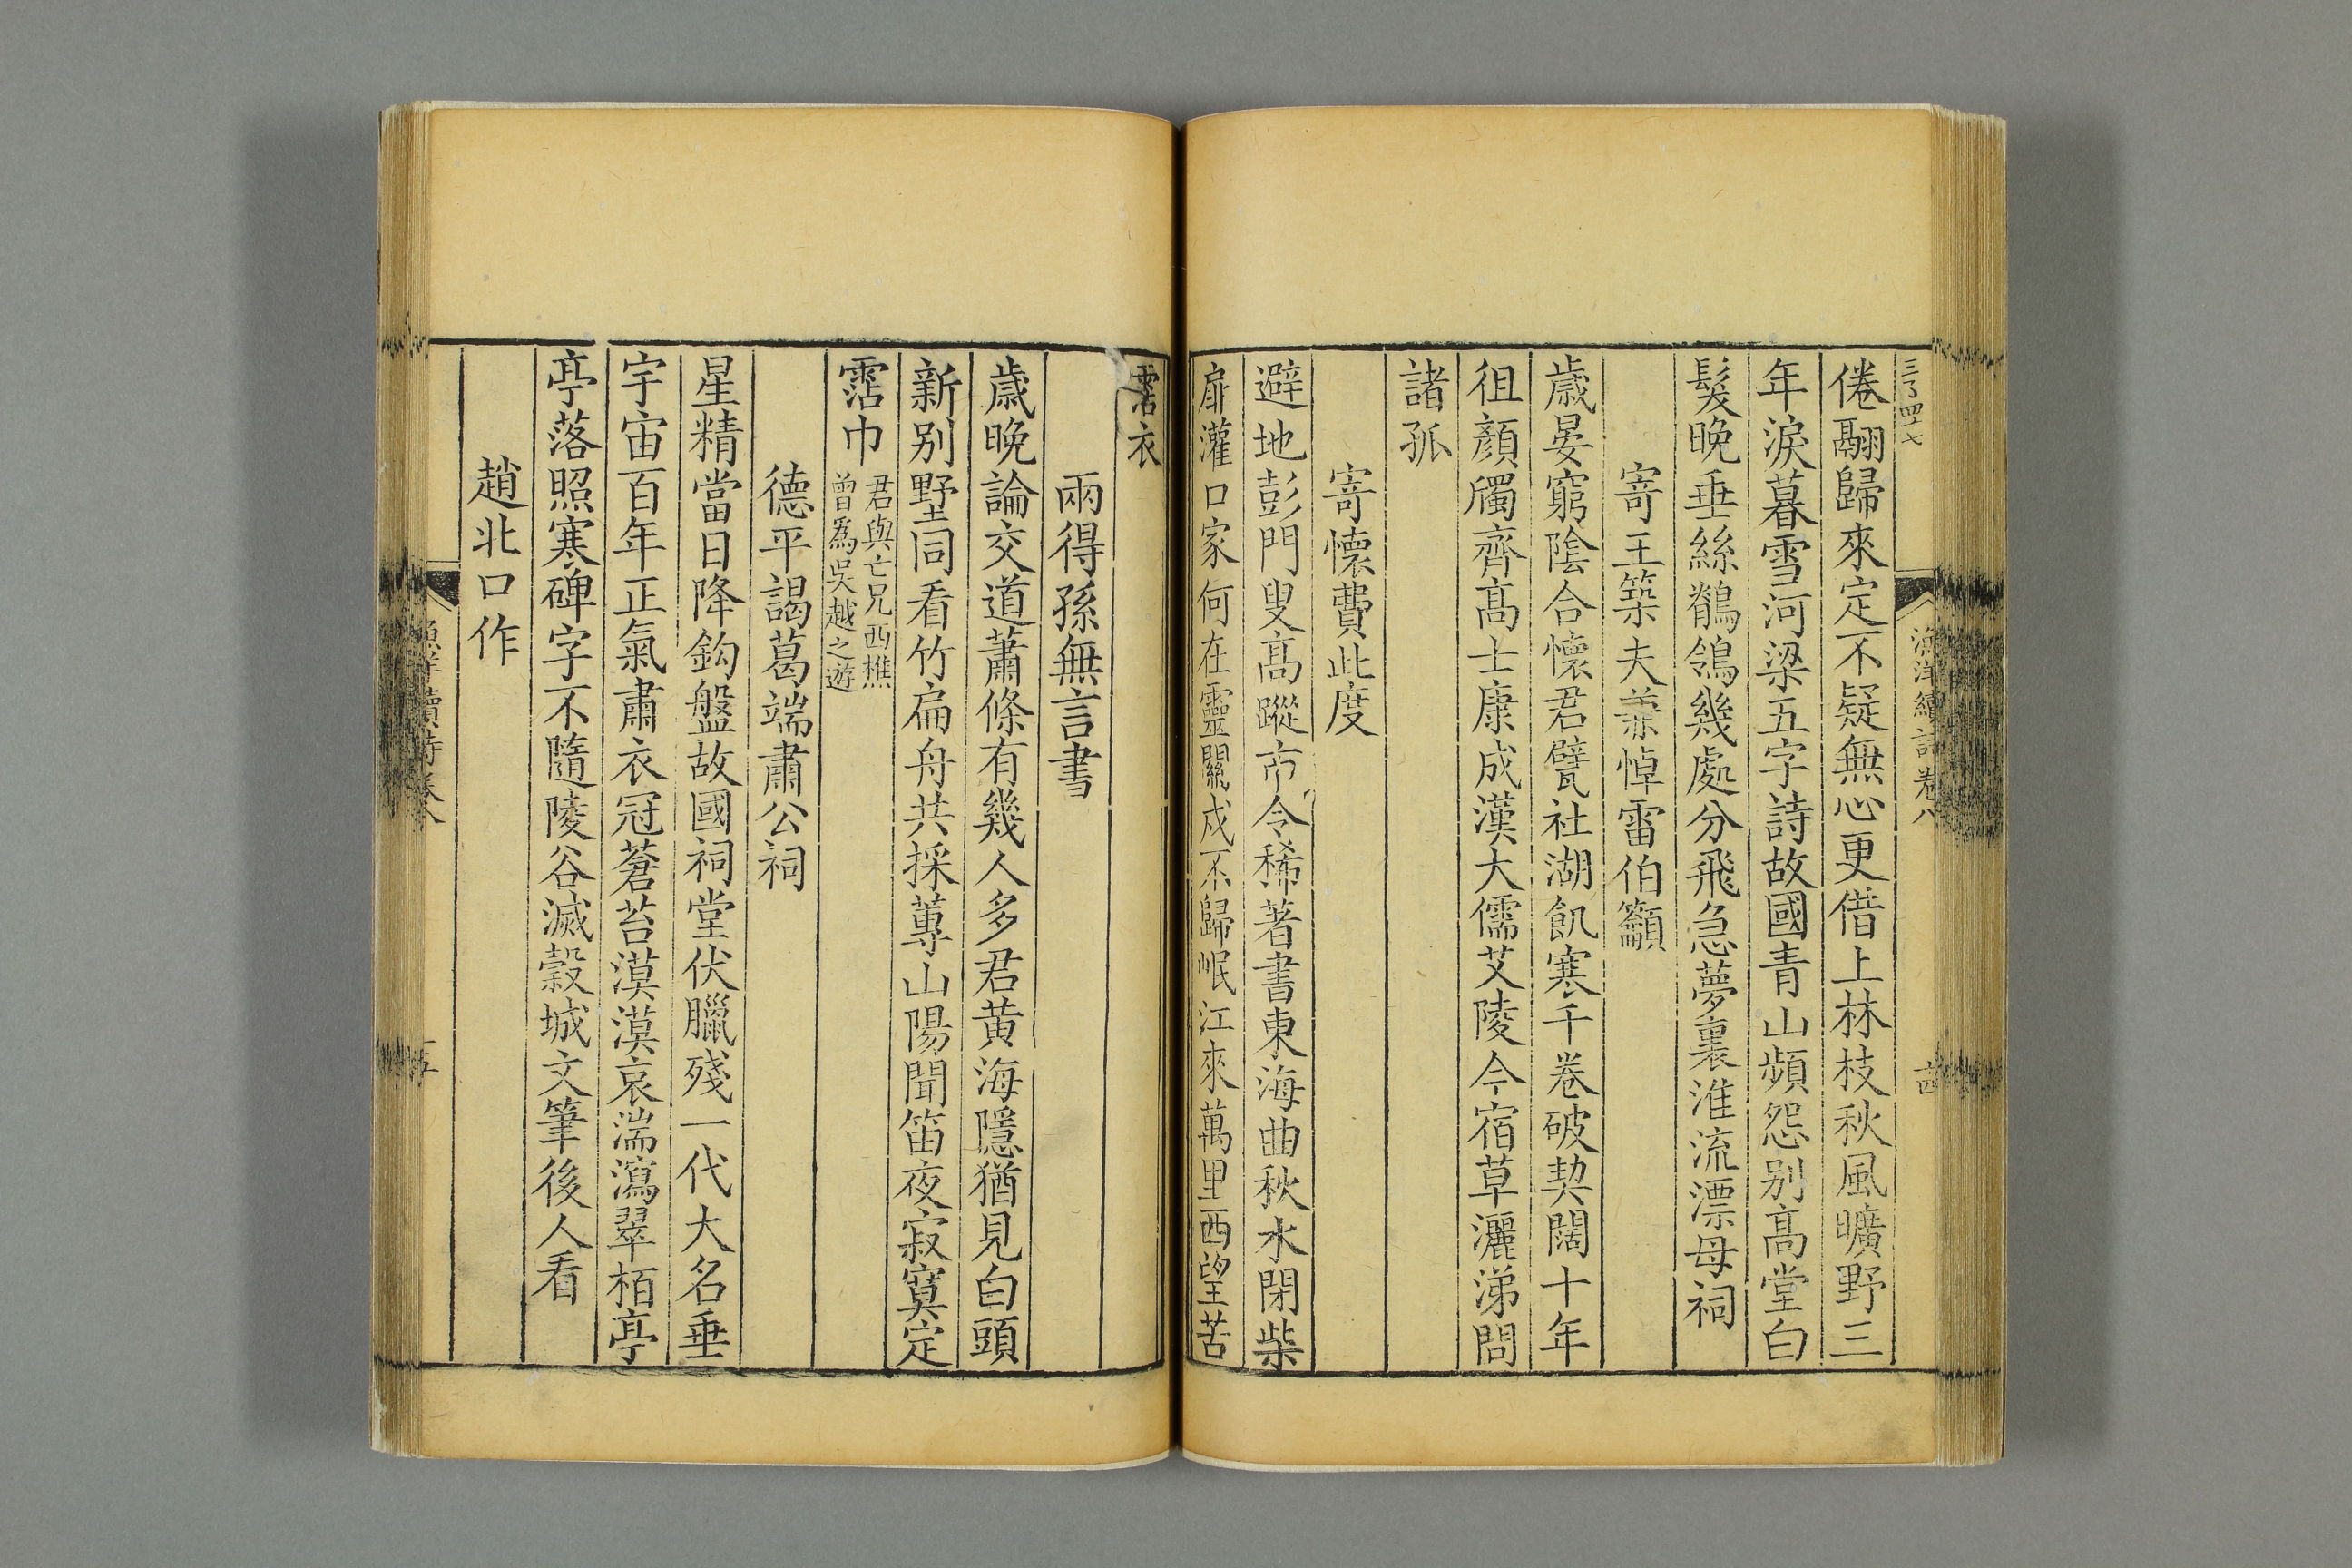 漁洋續詩卷八
倦翮歸來定不疑無心更借上林枝秋風曠野三
年淚暮雪河梁五字詩故國青山頻怨别高堂白
髮晚垂絲鶺鴒幾處分飛急夢裏淮流漂母祠
寄王築夫兼悼雷伯籲
歲晏窮陰合懷君甓社湖飢寒千卷破契闊十年
徂顏斶齊高士康成漢大儒艾陵今宿草灑涕問
諸孤
寄懷費此度
避地彭門叟高蹤市令稀著書東海曲秋水閉柴
扉灌口家何在靈關戍不歸岷江來萬里西望苦
霑衣
兩得孫無言書
歲晚論交道蕭條有幾人多君黄海隱猶見白頭
新别墅同看竹扁舟共採蓴山陽聞笛夜寂寞定
霑巾君與亡兄西樵
曾爲吳越之遊
德平謁葛端肅公祠
星精當日降鈎盤故國祠堂伏臘殘一代大名垂
宇宙百年正氣肅衣冠蒼苔漠漠哀湍瀉翠栢亭
亭落照寒碑字不隨陵谷滅穀城文筆後人看
趙北口作
漁洋續詩卷八